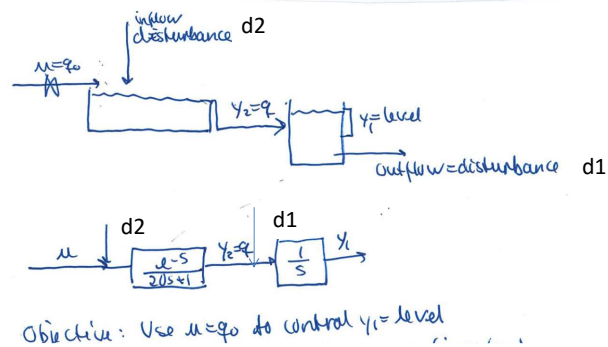 inflow
disturbance d2
u=q₀
y₂=q
y₁=level
outflow=disturbance d1
u
d2
e^-s
20s+1
y₂=q
d1
1
s
y₁
Objective: Use u=q₀ to control y₁=level